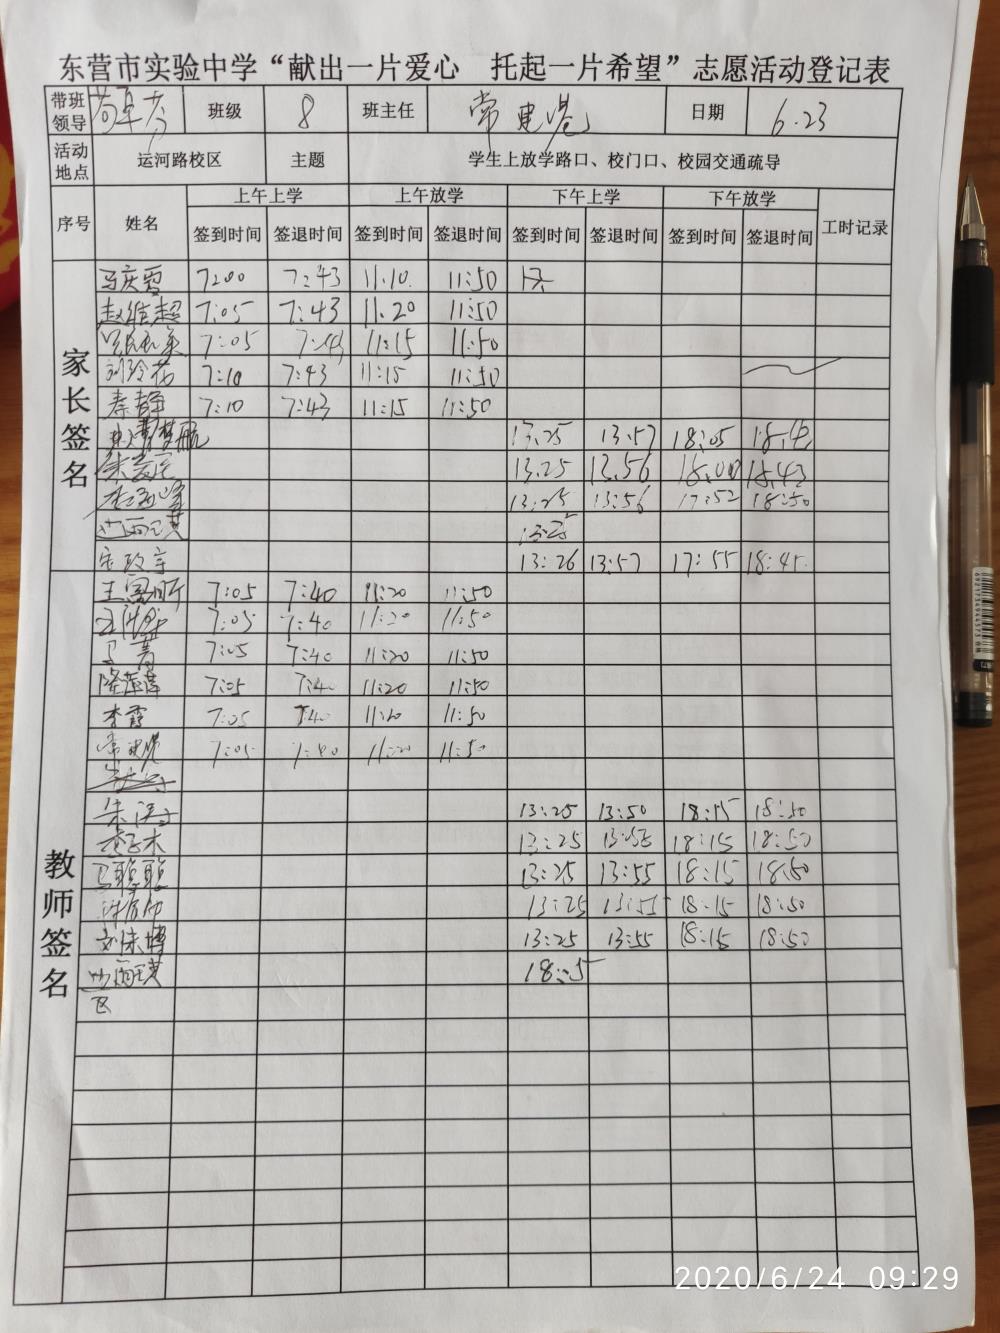 东营市实验中学“献出一片爱心 托起一片希望”志愿活动登记表
带班领导 班级 8 班主任 常建港 日期 6.23
活动地点 运河路校区 主题 学生上放学路口、校门口、校园交通疏导
序号 姓名 上午上学 上午放学 下午上学 下午放学 工时记录
签到时间 签退时间 签到时间 签退时间 签到时间 签退时间 签到时间 签退时间
家长签名
马庆霞 7:00 7:43 11.10. 11:50
赵维超 7:05 7:43 11.20 11:50
7:05 7:43 11:15 11:50
刘玲花 7:10 7:43 11:15 11:50
秦静 7:10 7:43 11:15 11:50
13.25 13.57 18:05 18.43
13.25 13.56 18.00 18.43
13:25 13:56 17:52 18:50
13:25
13:26 13:57 17:55 18:45.
教师签名
7:05 7:40 11:20 11:50
7:05 7:40 11:20 11:50
马菁 7:05 7:40 11:20 11:50
隆莲萍 7:05 7:40 11:20 11:50
李霞 7:05 7:40 11:20 11:50
常建港 7:05 7:40 11:20 11:50
朱涛 13:25 13:50 18:15 18:50
13:25 13:55 18:15 18:50
马聪聪 13:25 13:55 18:15 18:50
13:25 13:55 18:15 18:50
刘沫博 13:25 13:55 18:15 18:50
18:25
2020/6/24 09:29